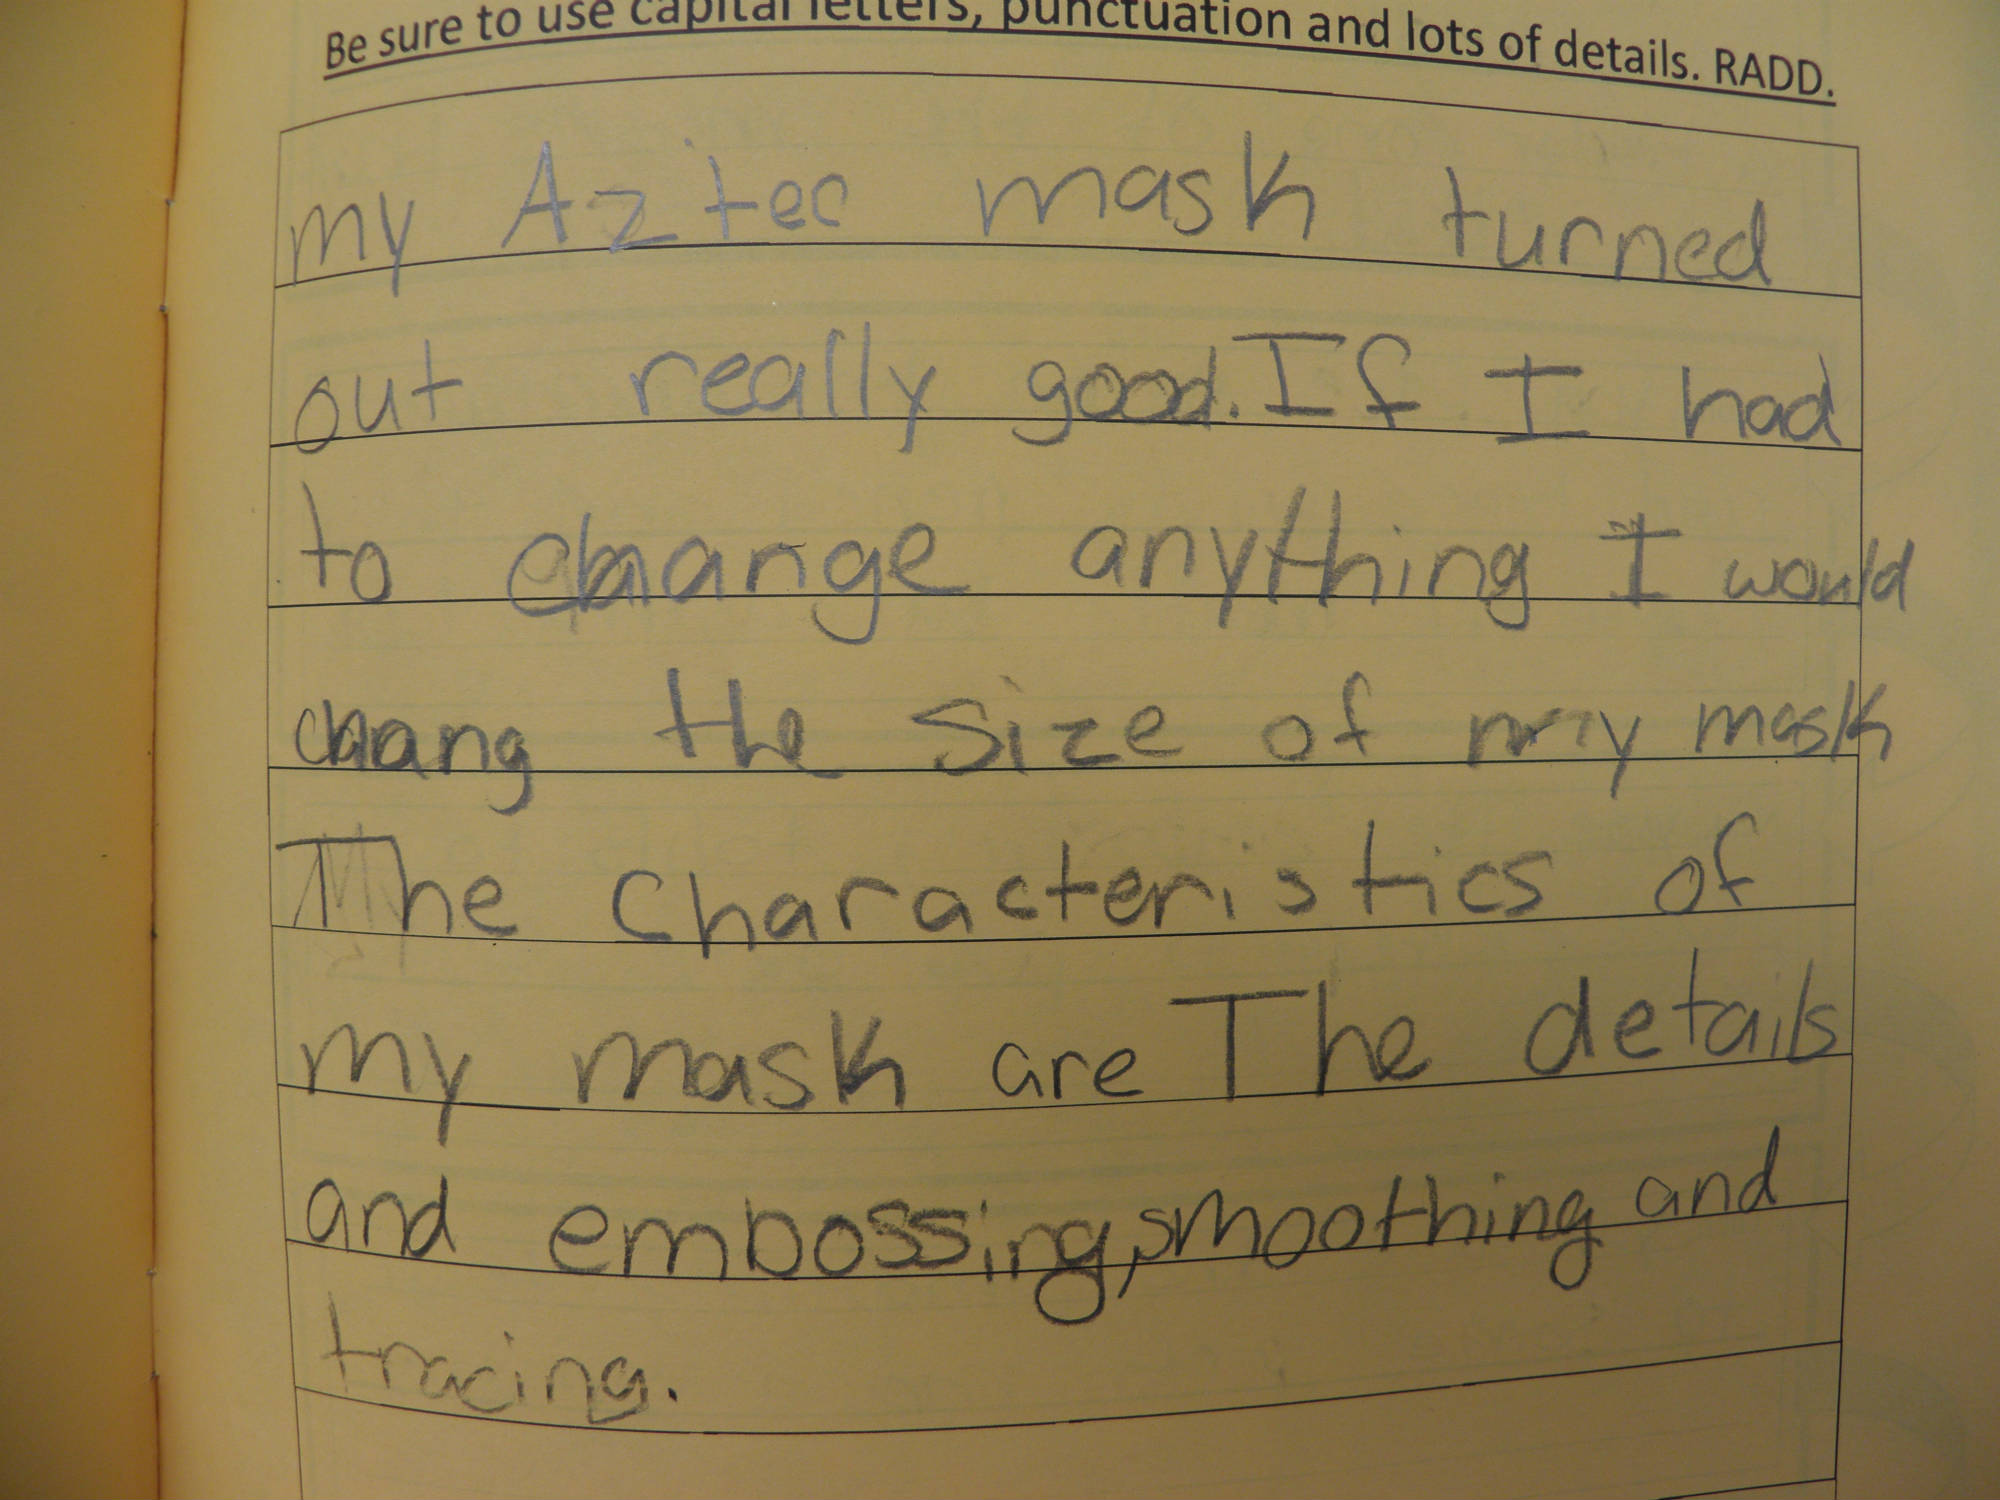 Be sure to use capital letters, punctuation and lots of details. RADD.
my Aztec mask turned
out really good. If I had
to change anything I would
chang the size of my mask
The characteristics of
my mask are The details
and embossing, smoothing and
tracing.